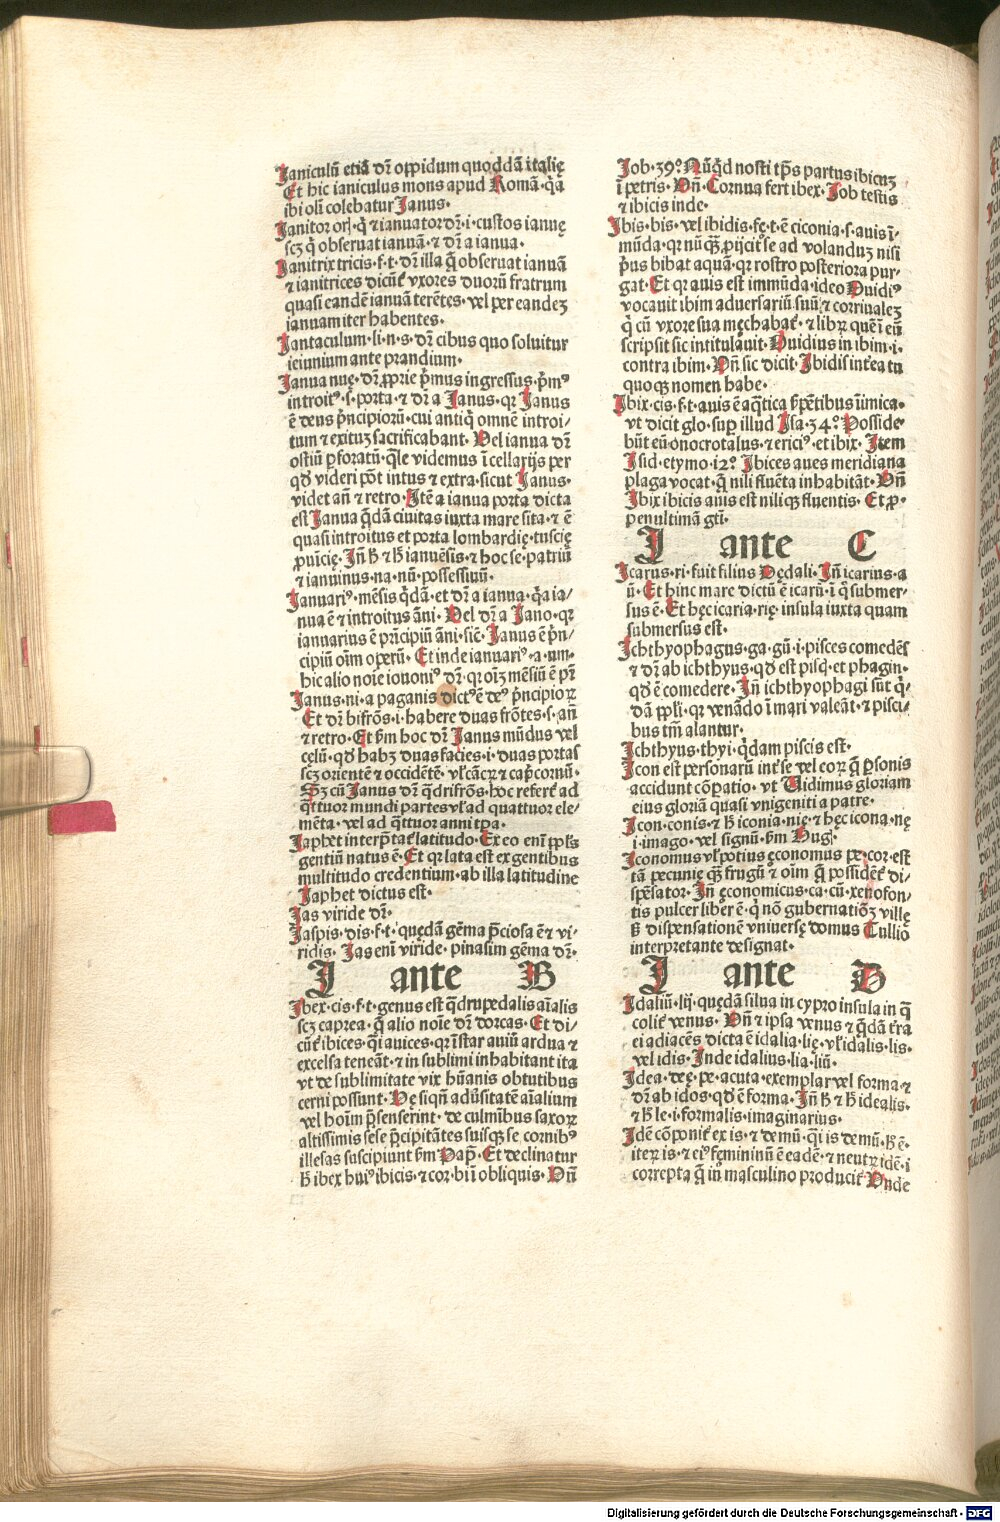 Janiculū etiā dr̄ oppidum quoddā italię
Et hic ianiculus mons apud Romā·q̇a
ibi oli colebatur Janus·
Janitor orꝭ·q̇ ⁊ ianuator dr̄·i·custos ianuę
scꝫ q̇ obseruat ianuā·⁊ dr̄ a ianua·
Janitrix tricis·f·t·dr̄ illa q̄ obseruat ianuā
⁊ ianitrices dicūt᷑ vxores duorū fratrum
quasi eandē ianuā terētes·vel per eandeꝫ
ianuam iter habentes·
Jantaculum·li·n·s·dr̄ cibus quo soluitur
ieiunium ante prandium·
Janua nuę·dr̄ ꝓprie p̄mus ingressus·p̄mꝰ
introitꝰ·s·porta·⁊ dr̄ a Janus·qꝛ Janus
ē deus p̄ncipiorū·cui antiq̇ omnē introi-
tum ⁊ exituꝫ sacrificabant· Vel ianua dr̄
ostiū ꝑforatū·q̄le videmus ī cellarijs per
qd̄ videri pōt intus ⁊ extra·sicut Janus·
videt añ ⁊ retro·Itē a ianua porta dicta
est Janua q̄dā ciuitas iuxta mare sita·⁊ ē
quasi introitus et porta lombardię·tuscię
ꝓuicię· Jñ h̄ ⁊ h̄ ianuēsis·⁊ hoc se·patriū
⁊ ianuinus·na·nū·possessiuū·
Januariꝰ·mēsis q̇dā·et dr̄ a ianua·q̇a ia-
nua ē ⁊ introitus āni· Vel dr̄ a Jano·qꝛ
ianuarius ē pr̄ncipiū āni·sic̄· Janus ē p̄n-
cipiū oīm operū· Et inde ianuariꝰ·a·um·
hic alio noīe iouoniꝰ dr̄·qꝛ oīꝫ mēsiū ē pr̄
Janus·ni·a paganis dictꝰ ē deꝰ p̄ncipioꝝ
Et dr̄ bifrōs·i·habere duas frōtes·s·añ
⁊ retro·Et ẜm hoc dr̄ Janus mūdus vel
cęlū·qd̄ habꝫ duas facies·i·duas portas
scꝫ orientē ⁊ occidētē·vl᷑ cācꝝ ⁊ capͥcornū·
Sꝫ cū Janus dr̄ q̇drifrōs·hoc refert᷑ ad
q̄ttuor mundi partes vl᷑ ad quattuor ele-
mēta·vel ad q̄ttuor anni tp̄a·
Japhet interp̄tat᷑ latitudo·Ex eo eni ppl̄s
gentiū natus ē·Et qꝛ lata est ex gentibus
multitudo credentium·ab illa latitudine
Japhet dictus est·
Jas viride dr̄·
Jaspis·dis·f·t· quędā gēma p̄ciosa ē ⁊ vi-
ridis· Jas eni viride· pinasim gēma dr̄·
J ante B
Jbex·cis·f·t·genus est q̄drupedalis aīalis
scꝫ caprea·q̄ alio noīe dr̄ dorcas·Et di-
cūt᷑ ibices·q̄si auices·qꝛ īstar auiū ardua ⁊
excelsa teneāt·⁊ in sublimi inhabitant ita
vt de sublimitate vix hūanis obtutibus
cerni possunt· De siqn̄ aduīsitatē aīalium
vel hoīm p̄senserint·de culmībus saxoꝝ
altissimis sese p̄cipitātes suisqꝫ se cornibꝰ
illesas suscipiunt ẜm Pap̄·Et declinatur
h̄ ibex huiꝰ ibicis·⁊ cor·bi ī obliquis·Vn̄
Job·39°·Nūq̇d nosti tp̄s partus ibicuꝫ
ī petris· Vn̄·Cornua fert ibex·Job testis
⁊ ibicis inde·
Jbis·bis·vel ibidis·fę·t·ē ciconia·s·auis ī-
mūda·qꝛ nūqꝫ ꝓijcit se ad volanduꝫ nisi
p̄us bibat aquā·qꝛ rostro posteriora pur-
gat·Et qꝛ auis est immūda·ideo Ouidiꝰ
vocauit ibim aduersariū suū·⁊ corriualeꝫ
q̇ cū vxore sua męchabat᷑·⁊ libꝝ quē ī eū
scripsit sic intitulauit· Ouidius in ibim·i·
contra ibim· Vn̄ sic dicit·Ibidis int̄ea tu
quoqꝫ nomen habe·
Jbix·cis·f·t·auis ē aq̄tica s̄pētibus inimica·
vt dicit glo·suꝑ illud Jsa·34°·Posside
būt eū onocrotalus·⁊ ericiꝰ·et ibix· Item
Jsid·etymo·12°·Jbices aues meridiana
plaga vocat·q̄ nili fluēta inhabitāt·Vn̄
Jbix ibicis auis est niliqꝫ fluentis· Et ꝓ·
penultimā gt̄i·
J ante C
Jcarus·ri·fuit filius Dędali·Jn̄ icarius·a
ū·Et hinc mare dictū ē icarū·ī q̇ submer-
sus ē·Et hęc icaria·rię·insula iuxta quam
submersus est·
Jchthyophagus·ga·gū·i·pisces comedēs
⁊ dr̄ ab ichthyus·qd̄ est pisc̄·et phagin·
qd̄ ē comedere·Jn̄ ichthyophagi sūt q̇-
dā ppl̄i·qꝛ venādo ī mari valeāt·⁊ pisci-
bus tm̄ alantur·
Jchthyus·thyi·q̇dam piscis est·
Jcon est personarū int᷑ se vel coꝝ q̄ ꝑsonis
accidunt cōpatio·vt Uidimus gloriam
eius gloriā quasi vnigeniti a patre·
Jcon·conis·⁊ h̄ iconia·nię·⁊ hęc icona·nę
·i·imago·vel signū·ẜm Hug̅·
Jconomus vl᷑ potius ęconomus pe·cor·est
tā pecunię qꝫ frugū ⁊ oīm q̄ possidēt᷑ di-
spēsator·Jn̄ ęconomicus·ca·cū·xenofon-
tis pulcer liber ē·q̇ nō gubernatiōꝫ villę
ß dispensationē vniuersę domus Tullio
interpretante designat·
J ante D
Jdaliū·lij·quędā silua in cypro insula in q̄
colit᷑ venus· Vn̄ ⁊ ipsa venus ⁊ q̄dā t̄ra
ei adiacēs dicta ē idalia·lię·vl᷑ idalis·lis·
vel idis· Jnde idalius·lia·liū·
Jdea·deę·pe·acuta·exemplar vel forma·⁊
dr̄ ab idos·qd̄ ē forma· Jn̄ h̄ ⁊ h̄ idealis·
⁊ h̄ le·i·formalis·imaginarius·
Jdē cōponit᷑ ex is·⁊ demū·q̄si is demū·h̄ ē·
iteꝝ is·⁊ eiꝰ femininū ē eadē·⁊ neutꝝ idē·i
correpta q̄ in masculino producit᷑ Vnde
Digitalisierung gefördert durch die Deutsche Forschungsgemeinschaft - DFG